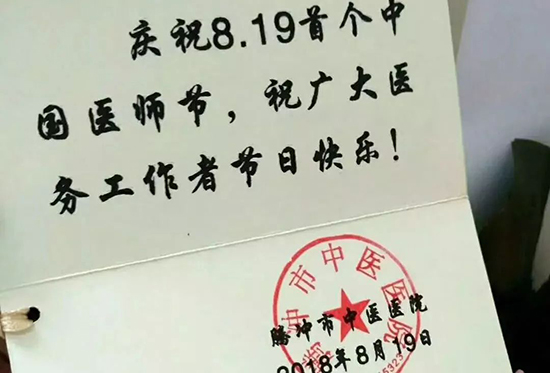 庆祝8.19首个中
国医师节，祝广大医
务工作者节日快乐！
腾冲市中医医院
腾冲市中医医院
2018年8月19日
5323